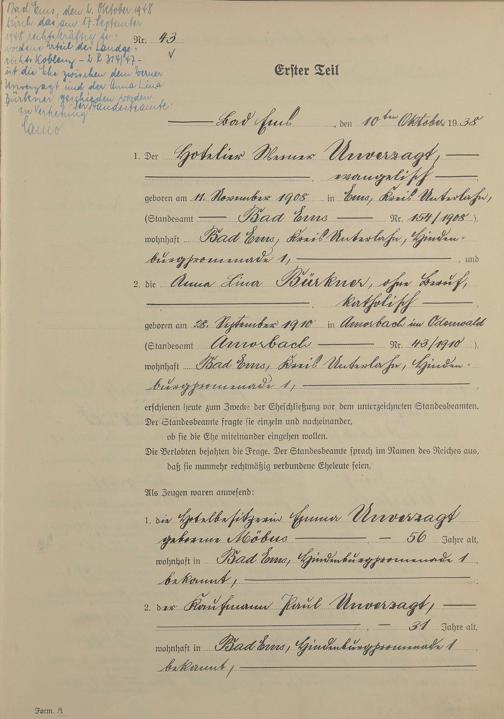 Bad Ems, den 2. Oktober 1948
Durch das am 17. September
1948 rechtskräftig ge-
wordene Urteil des Landge-
richts Koblenz - 2 R 314/47 -
ist die Ehe zwischen dem Werner
Unverzagt und der Anna Lina
Bürkner geschieden worden
Der Standesbeamte:
In Vertretung
Nr. 43
Erster Teil
Bad Ems, den 10ten Oktober 1938
1. Der Hotelier Werner Unverzagt,
evangelisch
geboren am 11. November 1908 in Ems, Kreis Unterlahn,
(Standesamt Bad Ems Nr. 154/1908).
wohnhaft Bad Ems, Kreis Unterlahn, Hinden-
burgpromenade 1, und
2. die Anna Lina Bürkner, ohne Beruf,
katholisch
geboren am 28. September 1910 in Amorbach im Odenwald
(Standesamt Amorbach Nr. 43/1910).
wohnhaft Bad Ems, Kreis Unterlahn, Hinden-
burgpromenade 1,
erschienen heute zum Zwecke der Eheschließung vor dem unterzeichneten Standesbeamten.
Der Standesbeamte fragte sie einzeln und nacheinander,
ob sie die Ehe miteinander eingehen wollen.
Die Verlobten bejahten die Frage. Der Standesbeamte sprach im Namen des Reiches aus,
daß sie nunmehr rechtmäßig verbundene Eheleute seien.
Als Zeugen waren anwesend:
1. die Hotelbesitzerin Emma Unverzagt
geborene Möbus 56 Jahre alt,
wohnhaft in Bad Ems, Hindenburgpromenade 1
bekannt,
2. der Kaufmann Paul Unverzagt,
31 Jahre alt,
wohnhaft in Bad Ems, Hindenburgpromenade 1
bekannt,
Form. A